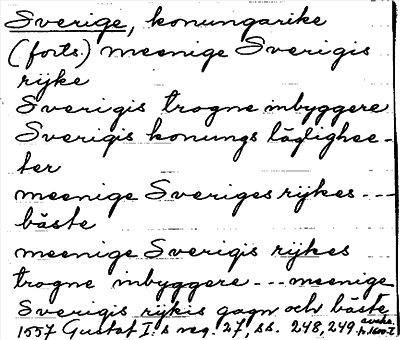 Sverige, konungarike
(forts.) meenige Sverigis
rijke
Sverigis trogne inbyggere
Sverigis konungs läglighee-
ter
meenige Sveriges rijkes ---
bäste
meenige Sverigis rijkes
trogne inbyggere --- meenige
Sverigis rijkis gagn och bäste
1557 Gustaf I:s reg. 27, ss. 248, 249